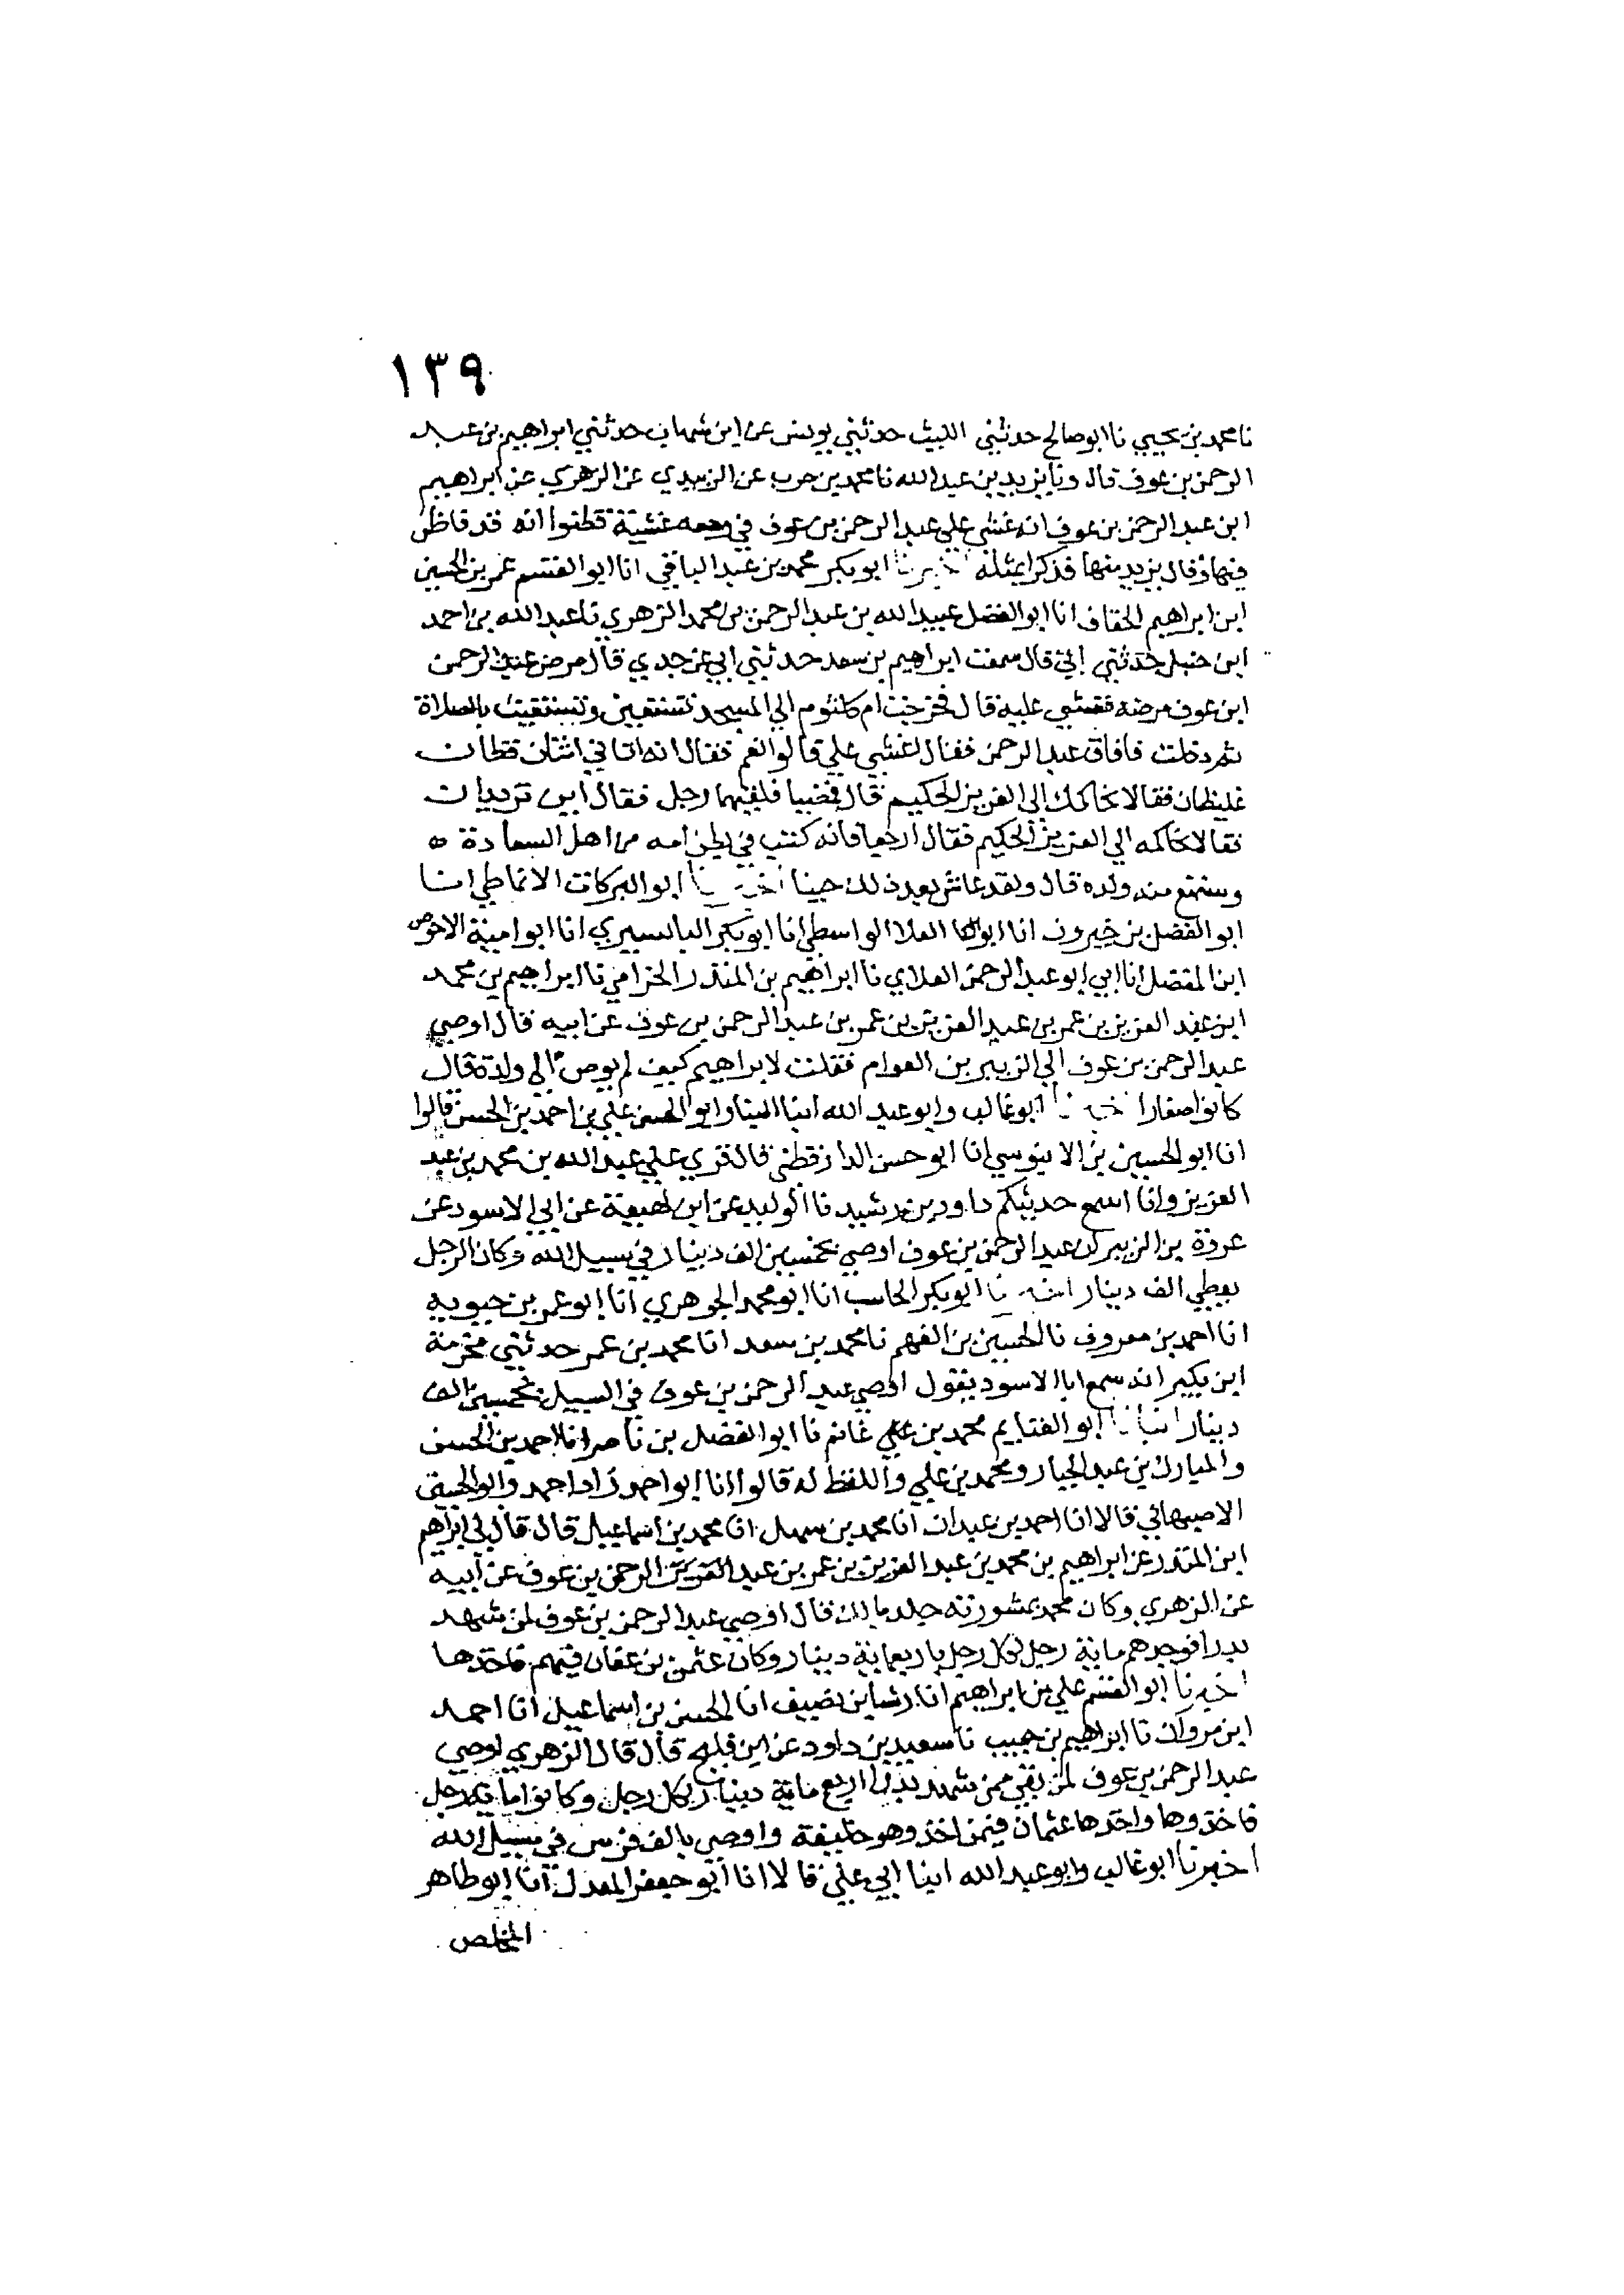 ١٣٩
نا محمد بن يحيي نا ابو صالح حدثني الليث حدثني يونس عن ابن شهاب حدثني ابراهيم بن عبد
الرحمن بن عوف قال ونا يزيد بن عبد الله نا محمد بن حرب عن الزبيدي عن الزهري عن ابراهيم
ابن عبد الرحمن بن عوف انه غشي علي عبد الرحمن بن عوف في وجعه غشية فظنوا انه قد فاظ
فيها وقال يزيد منها فذكرا بمثله اخبرنا ابو بكر محمد بن عبد الباقي انا ابو القسم عمر بن الحسين
ابن ابراهيم الخفاف انا ابو الفضل عبيد الله بن عبد الرحمن بن محمد الزهري نا عبد الله بن احمد
ابن حنبل حدثني ابي قال سمعت ابراهيم بن سعد حدثني ابي عن جدي قال مرض عبد الرحمن
ابن عوف مرضه فغشي عليه قال فخرجت ام كلثوم الي المسجد تستعين وتستغيث بالصلاة
ثم دخلت فافاق عبد الرحمن فقال اغشي علي قالوا نعم فقال انه اتاني اثنان فظان
غليظان فقالا نحاكمك الي العزيز الحكيم قال فذهبا فلقيهما رجل فقال اين تريدان
فقالا نحاكمه الي العزيز الحكيم فقال ارجعا فانه كتب في بطن امه من اهل السعادة ه
وسيتمتع منه ولده قال ولقد عاش بعد ذلك حينا اخبرنا ابو البركات الانماطي انا
ابو الفضل بن خيرون انا ابو العلا الواسطي انا ابو بكر البابسيري انا ابو امية الاحوص
ابن المفضل انا ابي ابو عبد الرحمن الغلابي نا ابراهيم بن المنذر الحزامي نا ابراهيم بن محمد
ابن عبد العزيز بن عمر بن عبد العزيز بن عمر بن عبد الرحمن بن عوف عن ابيه قال اوصي
عبد الرحمن بن عوف الي الزبير بن العوام فقلت لابراهيم كيف لم يوص الي ولده قال
كانوا صغارا اخبرنا ابو غالب وابو عبد الله ابنا البنا وابو الحسن علي بن احمد بن الحسن قالوا
انا ابو الحسين بن الابنوسي انا ابو حسن الدارقطني قال قري علي عبد الله بن محمد بن عبد
العزيز وانا اسمع حدثكم داود بن رشيد نا الوليد عن ابن لهيعة عن ابي الاسود عن
عروة بن الزبير ان عبد الرحمن بن عوف اوصي بخمسين الف دينار في سبيل الله وكان الرجل
يعطي الف دينار اخبرنا ابو بكر الحاسب انا ابو محمد الجوهري انا ابو عمر بن حيويه
انا احمد بن معروف نا الحسين بن الفهم نا محمد بن سعد انا محمد بن عمر حدثني مخرمة
ابن بكير انه سمع ابا الاسود يقول اوصي عبد الرحمن بن عوف في السبيل بخمسين الف
دينار انبانا ابو الغنايم محمد بن علي غانم نا ابو الفضل بن ناصر انا احمد بن الحسن
والمبارك بن عبد الجبار ومحمد بن علي واللفظ له قالوا انا ابو احمد زاد احمد وابو الحسين
الاصبهاني قالا انا احمد بن عبدان انا محمد بن سهل انا محمد بن اسماعيل قال قال لي ابراهيم
ابن المنذر عن ابراهيم بن محمد بن عبد العزيز بن عمر بن عبد الرحمن بن عوف عن ابيه
عن الزهري وكان محمد بمشورته جلد مالك قال اوصي عبد الرحمن بن عوف لمن شهد
بدرا فوجدهم ماية رجل لكل رجل باربعماية دينار وكان عثمن بن عفان فيهم فاخذها
اخبرنا ابو القسم علي بن ابراهيم انا رشا بن نضيف انا الحسن بن اسماعيل انا احمد
ابن مروان نا ابراهيم بن حبيب نا سعيد بن داود عن ابن فليح قال قال الزهري اوصي
عبد الرحمن بن عوف لمن بقي ممن شهد بدرا اربع ماية دينار لكل رجل وكانوا ماية رجل
فاخذوها واخذها عثمان فيمن اخذ وهو خليفة واوصي بالف فرس في سبيل الله
اخبرنا ابو غالب وابو عبد الله ابنا ابي علي قالا انا ابو جعفر المعدل انا ابو طاهر
المخلص